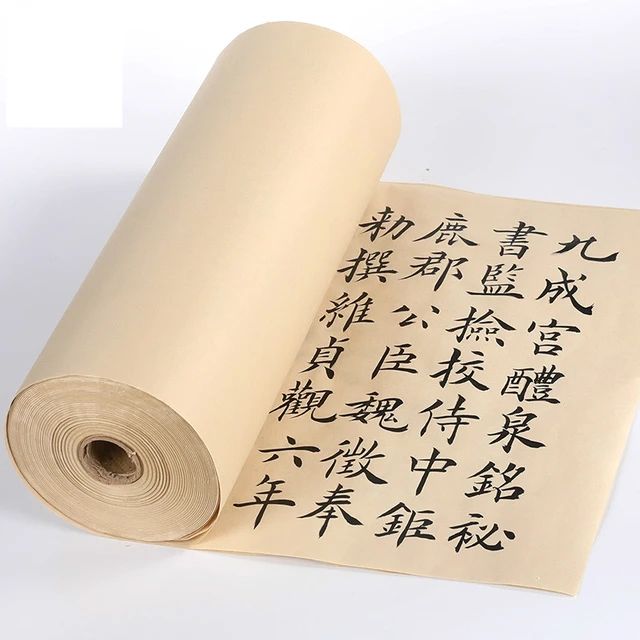 九成宮醴泉銘祕
書監撿挍侍中鉅
鹿郡公臣魏徵奉
勅撰維貞觀六年